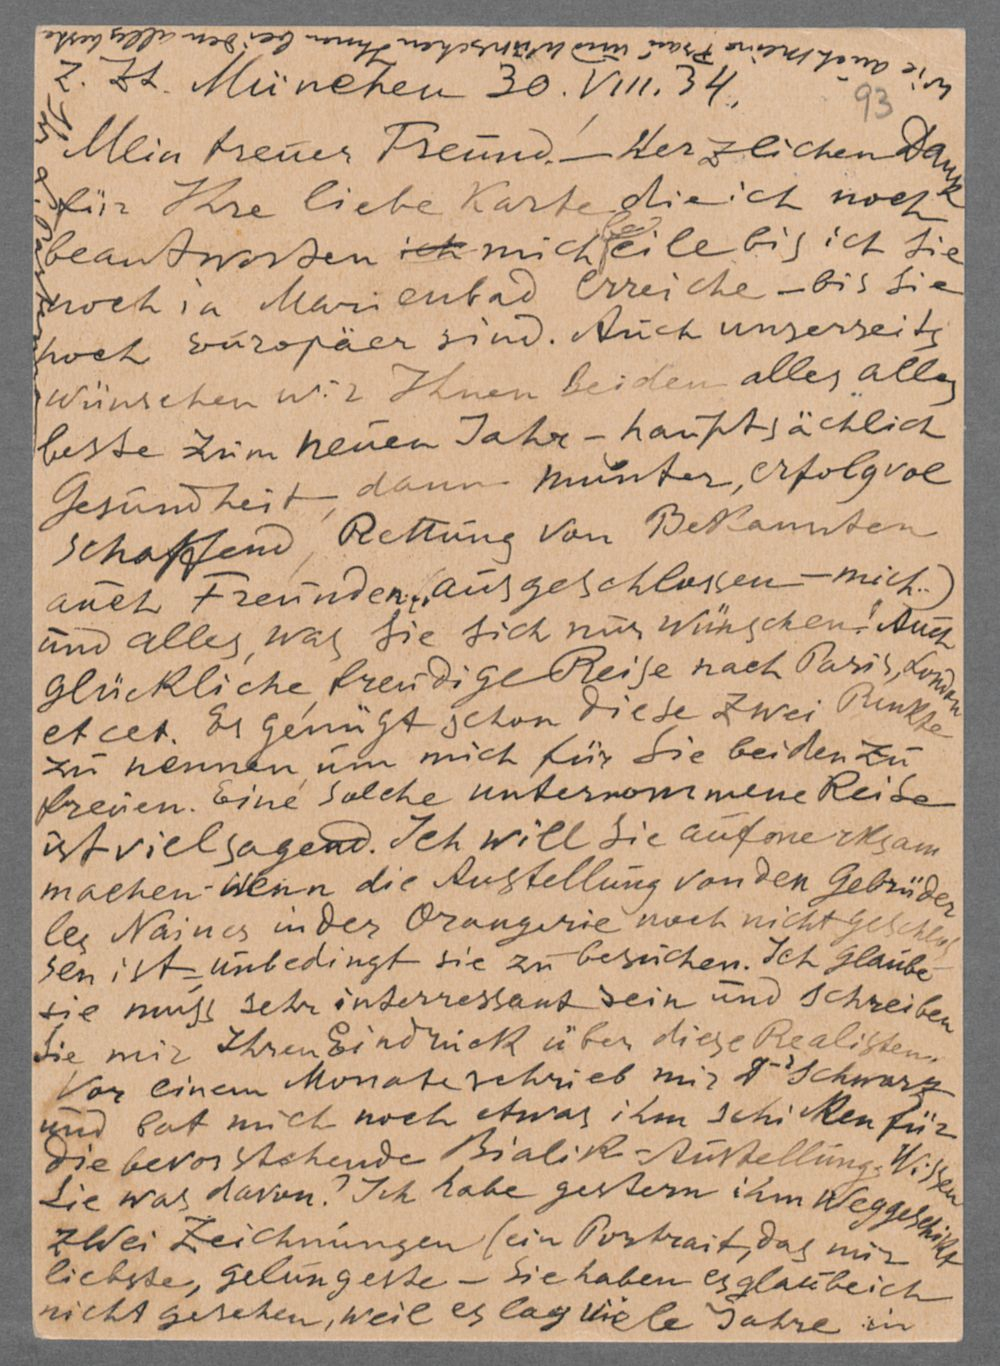 z. Zt. München 30. VIII. 34.
93
Mein treuer Freund! — Herzlichen Dank
für Ihre liebe Karte die ich noch
beantworten ich mich beeile bis ich Sie
noch in Marienbad erreiche – bis Sie
noch europäer sind. Auch unserseits
wünschen wir Ihnen beiden alles alles
beste zum neuen Jahr – hauptsächlich
Gesundheit, dann munter, erfolgvol
schaffend, Rettung von Bekannten
auch Freunden („ausgeschlossen – mich..)
und alles, was Sie sich nur wünschen! Auch
glückliche, freudige Reise nach Paris, London
etcet. Es genügt schon diese zwei Punkte
zu nennen, um mich für Sie beiden zu
freuen. Eine solche unternommene Reise
ist vielsagend. Ich will Sie aufmerksam
machen – Wenn die Austellung von den Gebrüder
les Naines in der Orangerie noch nicht geschlos
sen ist – unbedingt sie zu besuchen. Ich glaube
sie muss sehr interressant sein und schreiben
Sie mir Ihren Eindruck über diese Realisten.
Vor einem Monate schrieb mir Dr Schwarz
und bat mich noch etwas ihm schicken für
die bevorstehende Bialik-Austellung. Wissen
Sie was davon? Ich habe gestern ihm weggeschikt
zwei Zeichnungen (ein Portrait, das mir
liebste, gelungeste – Sie haben es glaube ich
nicht gesehen, weil es lag viele Jahre in
wie auch meine Frau und wünschen Ihnen beiden alles beste
Ihr